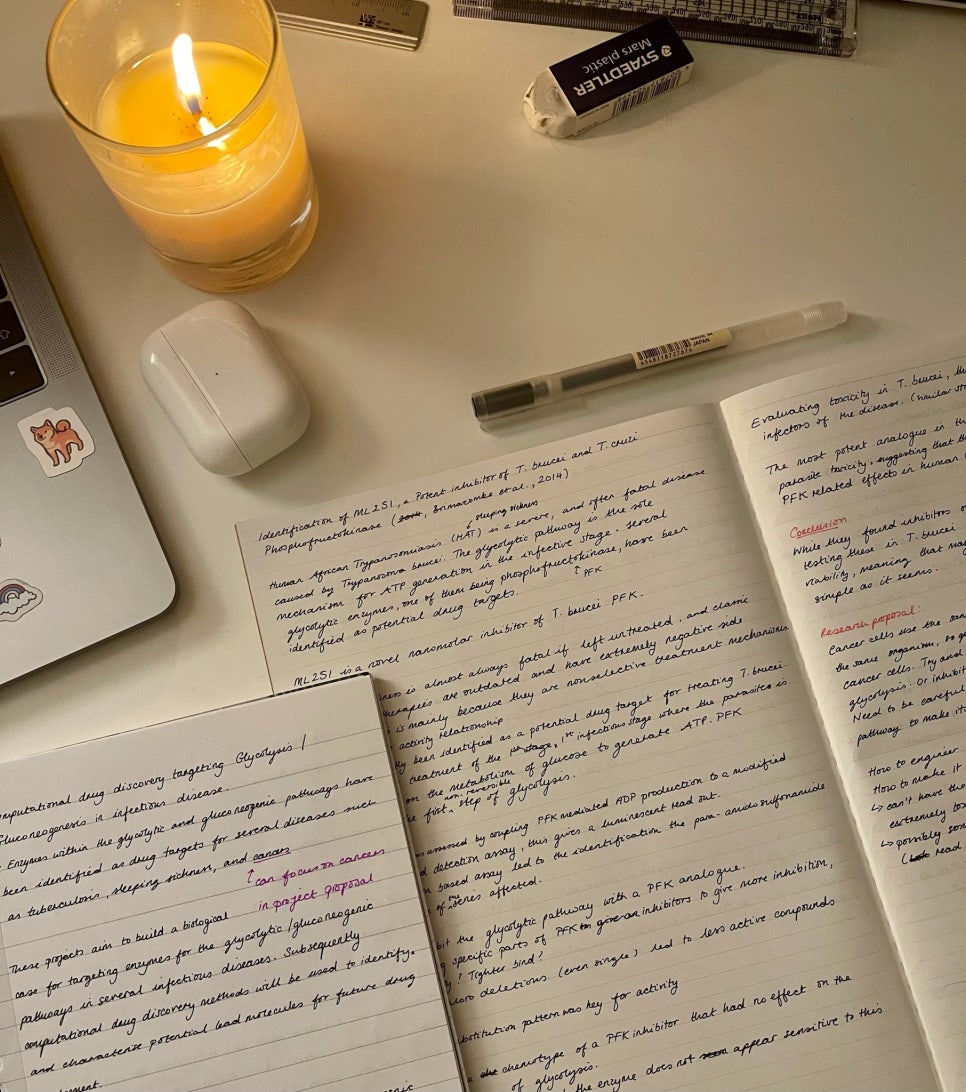 STAEDTLER
Mars plastic
MADE IN
JAPAN
Identification of ML251, a Potent inhibitor of T. brucei and T. cruzi
Phosphofructokinase ( Brimacombe et al., 2014)
sleeping sickness
Human African Trypanosomiasis (HAT) is a severe, and often fatal disease
caused by Trypanosoma brucei. The glycolytic pathway is the sole
mechanism for ATP generation in the infective stage. Several
glycolytic enzymes, one of them being phosphofructokinase, have been
identified as potential drug targets.
↑ PFK
ML251 is a novel nanomolar inhibitor of T. brucei PFK.
is almost always fatal if left untreated, and classic
therapies are outdated and have extremely negative side
is mainly because they are nonselective treatment mechanisms.
activity relationship
been identified as a potential drug target for treating T. brucei.
treatment of the stage, 1st infectious stage where the parasite is
on the metabolism of glucose to generate ATP. PFK
non-reversible
first step of glycolysis.
assessed by coupling PFK mediated ADP production to a modified
detection assay, this gives a luminescent read out.
based assay led to the identification the para-amidosulfonamide
affected.
the glycolytic pathway with a PFK analogue.
specific parts of PFK inhibitors to give more inhibition,
? Tighter bind?
deletions (even single) led to less active compounds
substitution pattern was key for activity
chenotype of a PFK inhibitor that had no effect on the
of glycolysis.
the enzyme does not appear sensitive to this
Evaluating toxicity in T. brucei, the
infectors of the disease. (similar
The most potent analogue in th
parasite toxicity, suggesting that th
PFK related effects in human
Conclusion
While they found inhibitors o
testing these in T. brucei
viability, meaning that may
simple as it seems.
Research proposal:
Cancer cells use the sam
the same organism, so
cancer cells. Try and
glycolysis. Or inhibit
Need to be careful
pathway to make it
How to engineer
How to make it
↳ can't have the
extremely to
↳ possibly som
( read
mputational drug discovery targeting Glycolysis /
Gluconeogenesis in infectious disease.
Enzymes within the glycolytic and gluconeogenic pathways have
been identified as drug targets for several diseases such
as tuberculosis, sleeping sickness, and cancer.
↑ can focus on cancer
in project proposal
These projects aim to build a biological
case for targeting enzymes for the glycolytic/gluconeogenic
pathways in several infectious diseases. Subsequently
computational drug discovery methods will be used to identify.
and characterise potential lead molecules for future drug